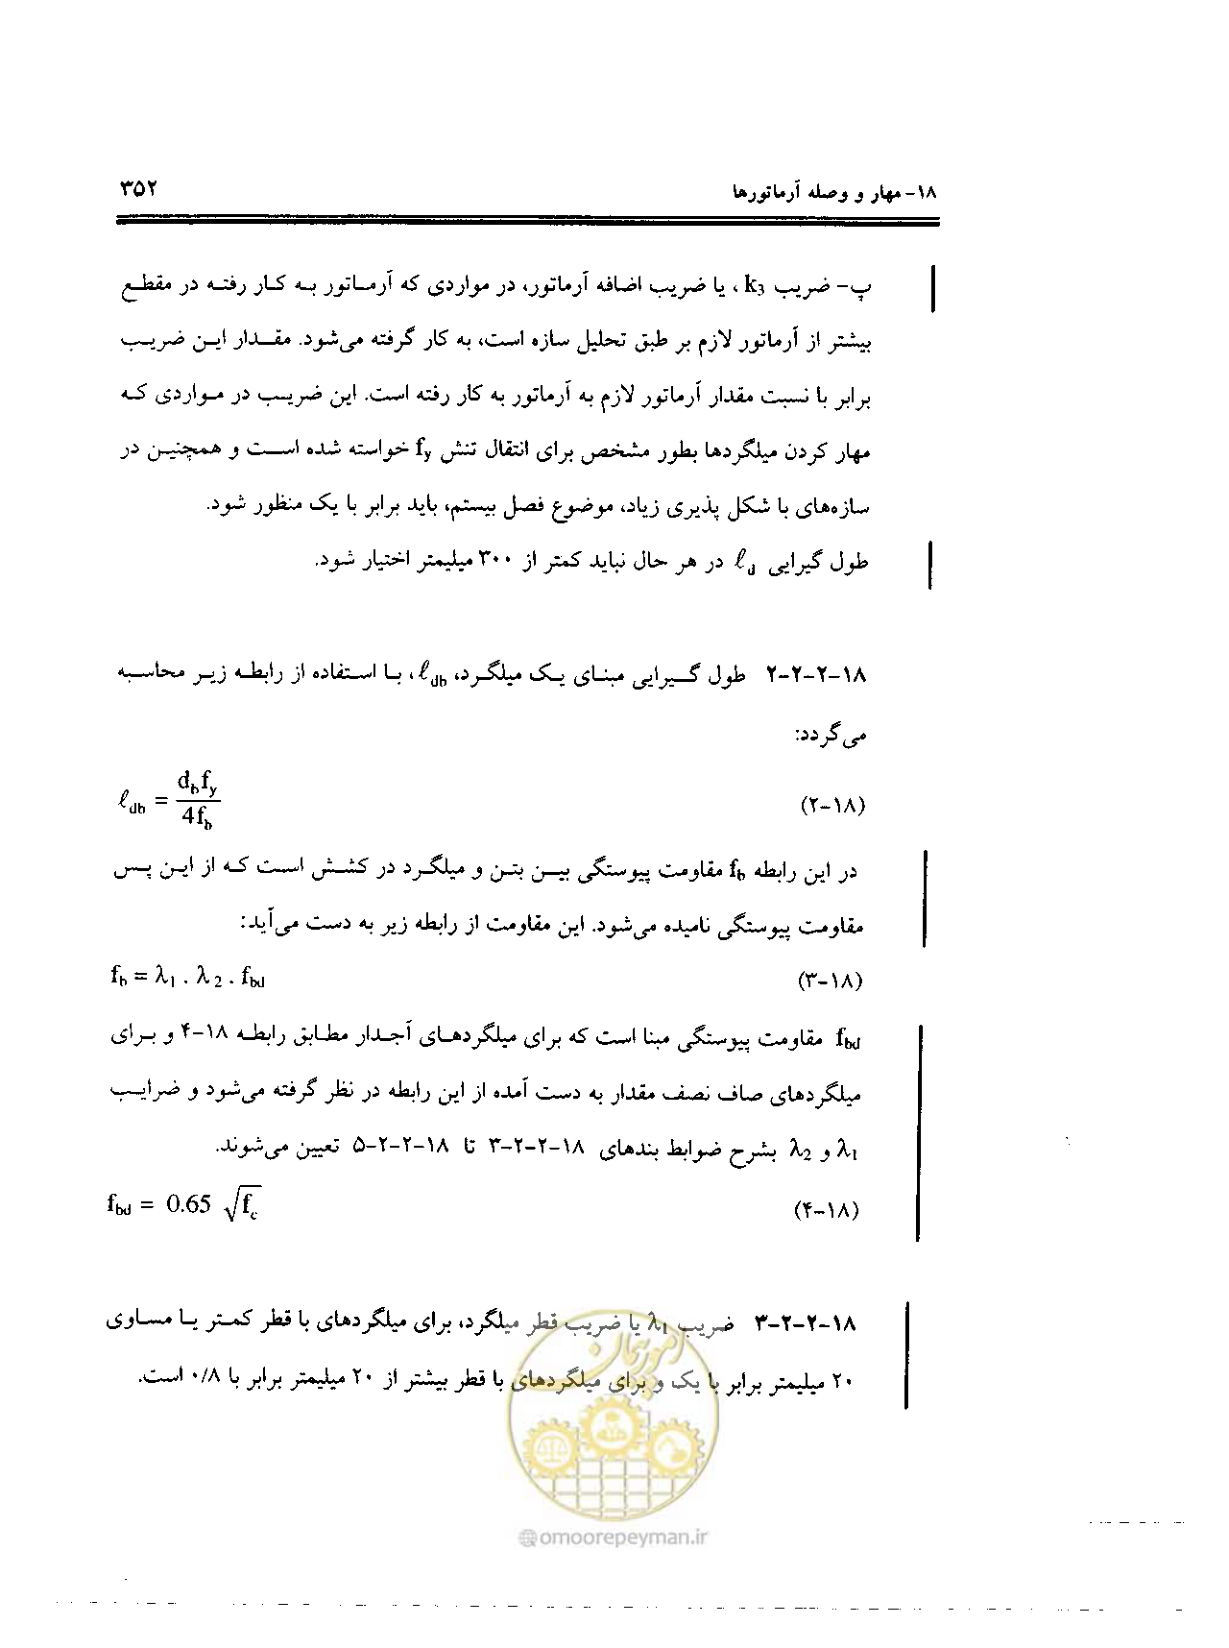 ۱۸- مهار و وصله آرماتورها ۳۵۲
پ- ضریب k3 ، یا ضریب اضافه آرماتور، در مواردی که آرماتور به کار رفته در مقطع
بیشتر از آرماتور لازم بر طبق تحلیل سازه است، به کار گرفته می‌شود. مقدار این ضریب
برابر با نسبت مقدار آرماتور لازم به آرماتور به کار رفته است. این ضریب در مواردی که
مهار کردن میلگردها بطور مشخص برای انتقال تنش fy خواسته شده است و همچنین در
سازه‌های با شکل پذیری زیاد، موضوع فصل بیستم، باید برابر با یک منظور شود.
طول گیرایی ℓd در هر حال نباید کمتر از ۳۰۰ میلیمتر اختیار شود.
۱۸-۲-۲-۲ طول گیرایی مبنای یک میلگرد، ℓdb، با استفاده از رابطه زیر محاسبه
می‌گردد:
(۱۸-۲) ℓdb = db fy / 4fb
در این رابطه fb مقاومت پیوستگی بین بتن و میلگرد در کشش است که از این پس
مقاومت پیوستگی نامیده می‌شود. این مقاومت از رابطه زیر به دست می‌آید:
(۱۸-۳) fb = λ1 . λ2 . fbd
fbd مقاومت پیوستگی مبنا است که برای میلگردهای آجدار مطابق رابطه ۱۸-۴ و برای
میلگردهای صاف نصف مقدار به دست آمده از این رابطه در نظر گرفته می‌شود و ضرایب
λ1 و λ2 بشرح ضوابط بندهای ۱۸-۲-۲-۳ تا ۱۸-۲-۲-۵ تعیین می‌شوند.
(۱۸-۴) fbd = 0.65 √fc
۱۸-۲-۲-۳ ضریب λ1 یا ضریب قطر میلگرد، برای میلگردهای با قطر کمتر یا مساوی
۲۰ میلیمتر برابر با یک و برای میلگردهای با قطر بیشتر از ۲۰ میلیمتر برابر با ۰/۸ است.
امور پیمان
@omoorepeyman.ir